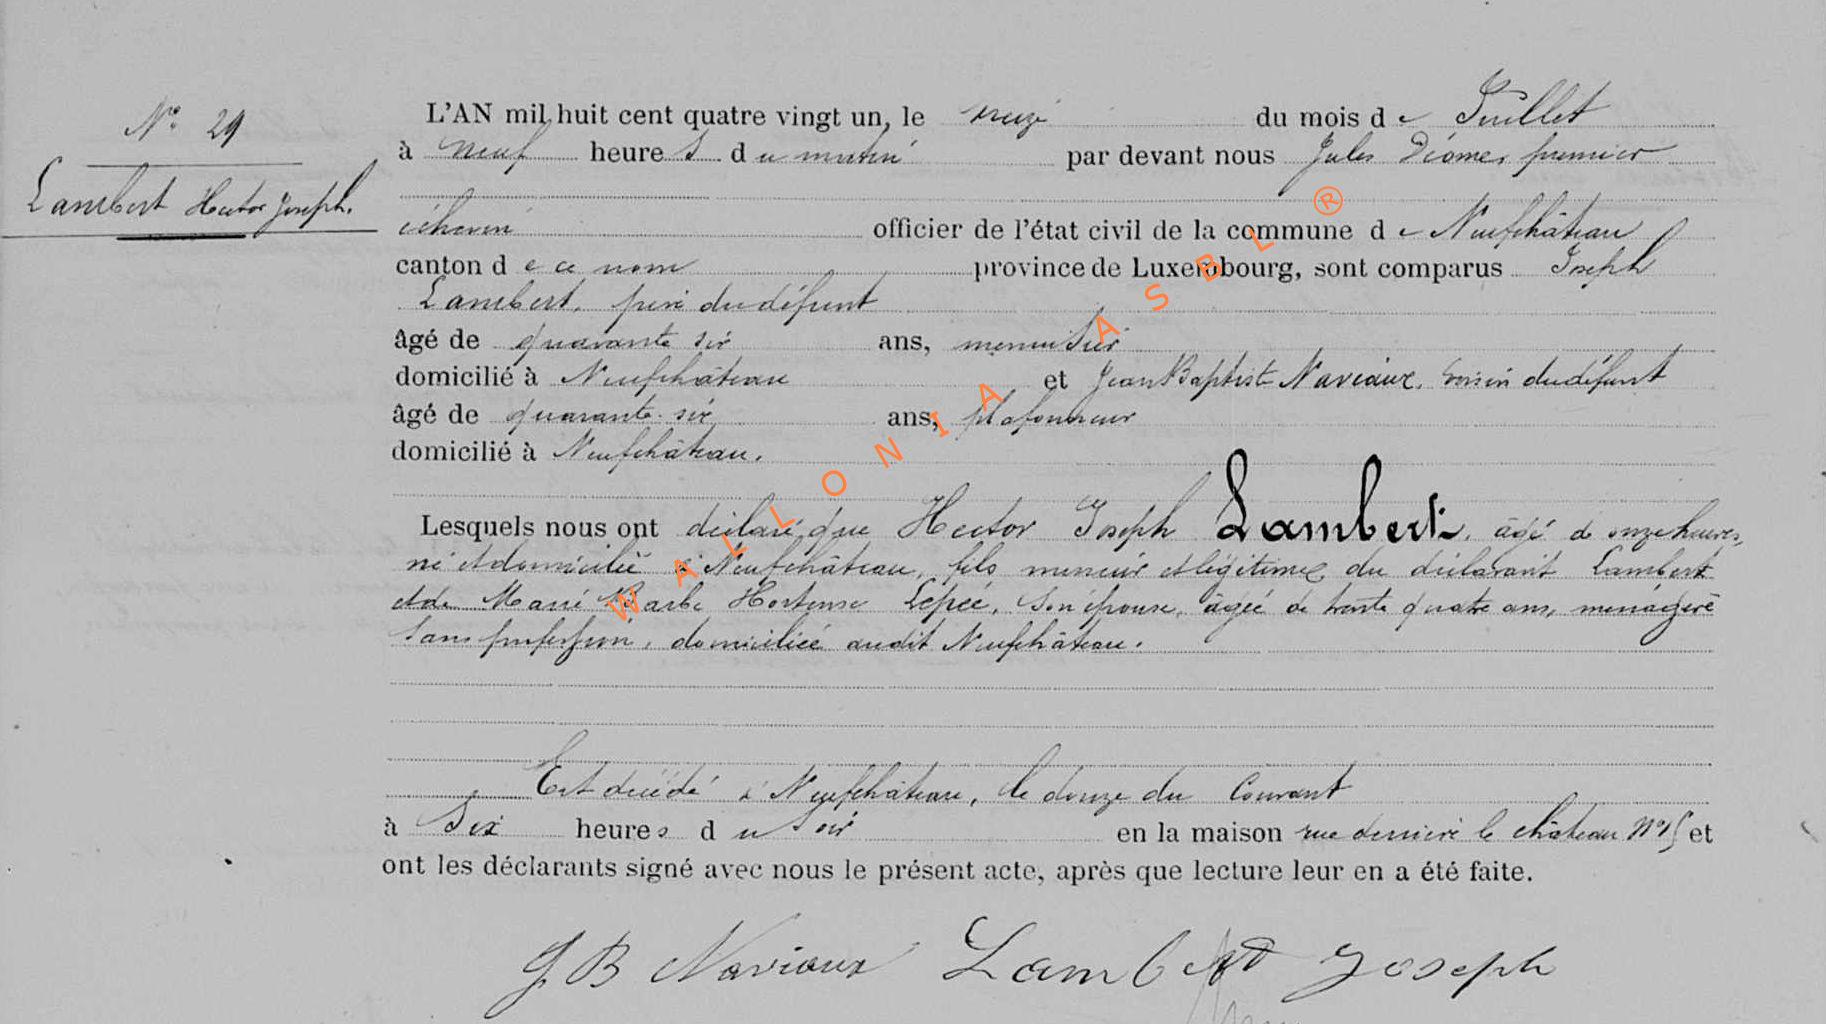 N° 29
Lambert Hector Joseph.
L'AN mil huit cent quatre vingt un, le treize du mois de Juillet
à neuf heures du matin par devant nous Jules premier
échevin officier de l'état civil de la commune de Neufchâteau
canton de ce nom province de Luxembourg, sont comparus Joseph
Lambert, père du défunt
âgé de quarante six ans, menuisier
domicilié à Neufchâteau et Jean Baptiste Naviaux, voisin du défunt
âgé de quarante-six ans, plafonneur
domicilié à Neufchâteau.
Lesquels nous ont déclaré que Hector Joseph Lambert, âgé de onze heures,
né et domicilié à Neufchâteau, fils mineur et légitime du déclarant Lambert
et de Marie Barbe Hortense Lepée, son épouse, âgée de trente quatre ans, ménagère
sans profession, domiciliée audit Neufchâteau.
Est décédé à Neufchâteau, le douze du courant
à six heures du soir en la maison rue derrière le château et
ont les déclarants signé avec nous le présent acte, après que lecture leur en a été faite.
J B Naviaux Lambert Joseph
WALLONIA ASBL ®